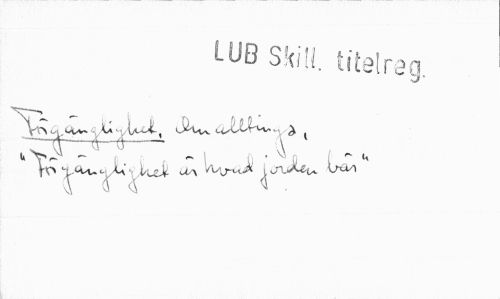 LUB Skill. titelreg.
Förgänglighet, Om alltings,
"Förgänglighet är hvad jorden bär"